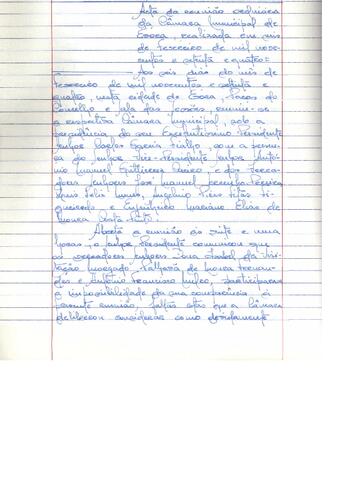 Acta da reunião ordinária
da Câmara Municipal de
Évora, realizada em seis
de Fevereiro de mil nove-
centos e setenta e quatro=
Aos seis dias do mês de
Fevereiro de mil novecentos e setenta e
quatro, nesta cidade de Évora, Paços do
Concelho e sala das sessões, reuniu-se
a respectiva Câmara Municipal, sob a
presidência do seu Excelentíssimo Presidente
senhor Carlos Garcia Fialho, com a presen-
ça do senhor Vice-Presidente senhor
Manuel e dos Verea-
dores senhores José Manuel
Félix
e Engenheiro Mariano Elias de
Moura
Aberta a reunião às vinte e uma
horas, o senhor Presidente comunicou que
os vereadores senhores Dona Isabel da Visi-
tação Morgado Falhosa de Moura Fernan-
des e António Francisco participaram
a impossibilidade da sua comparência à
presente reunião, faltas estas que a Câmara
deliberou considerar como devidamente